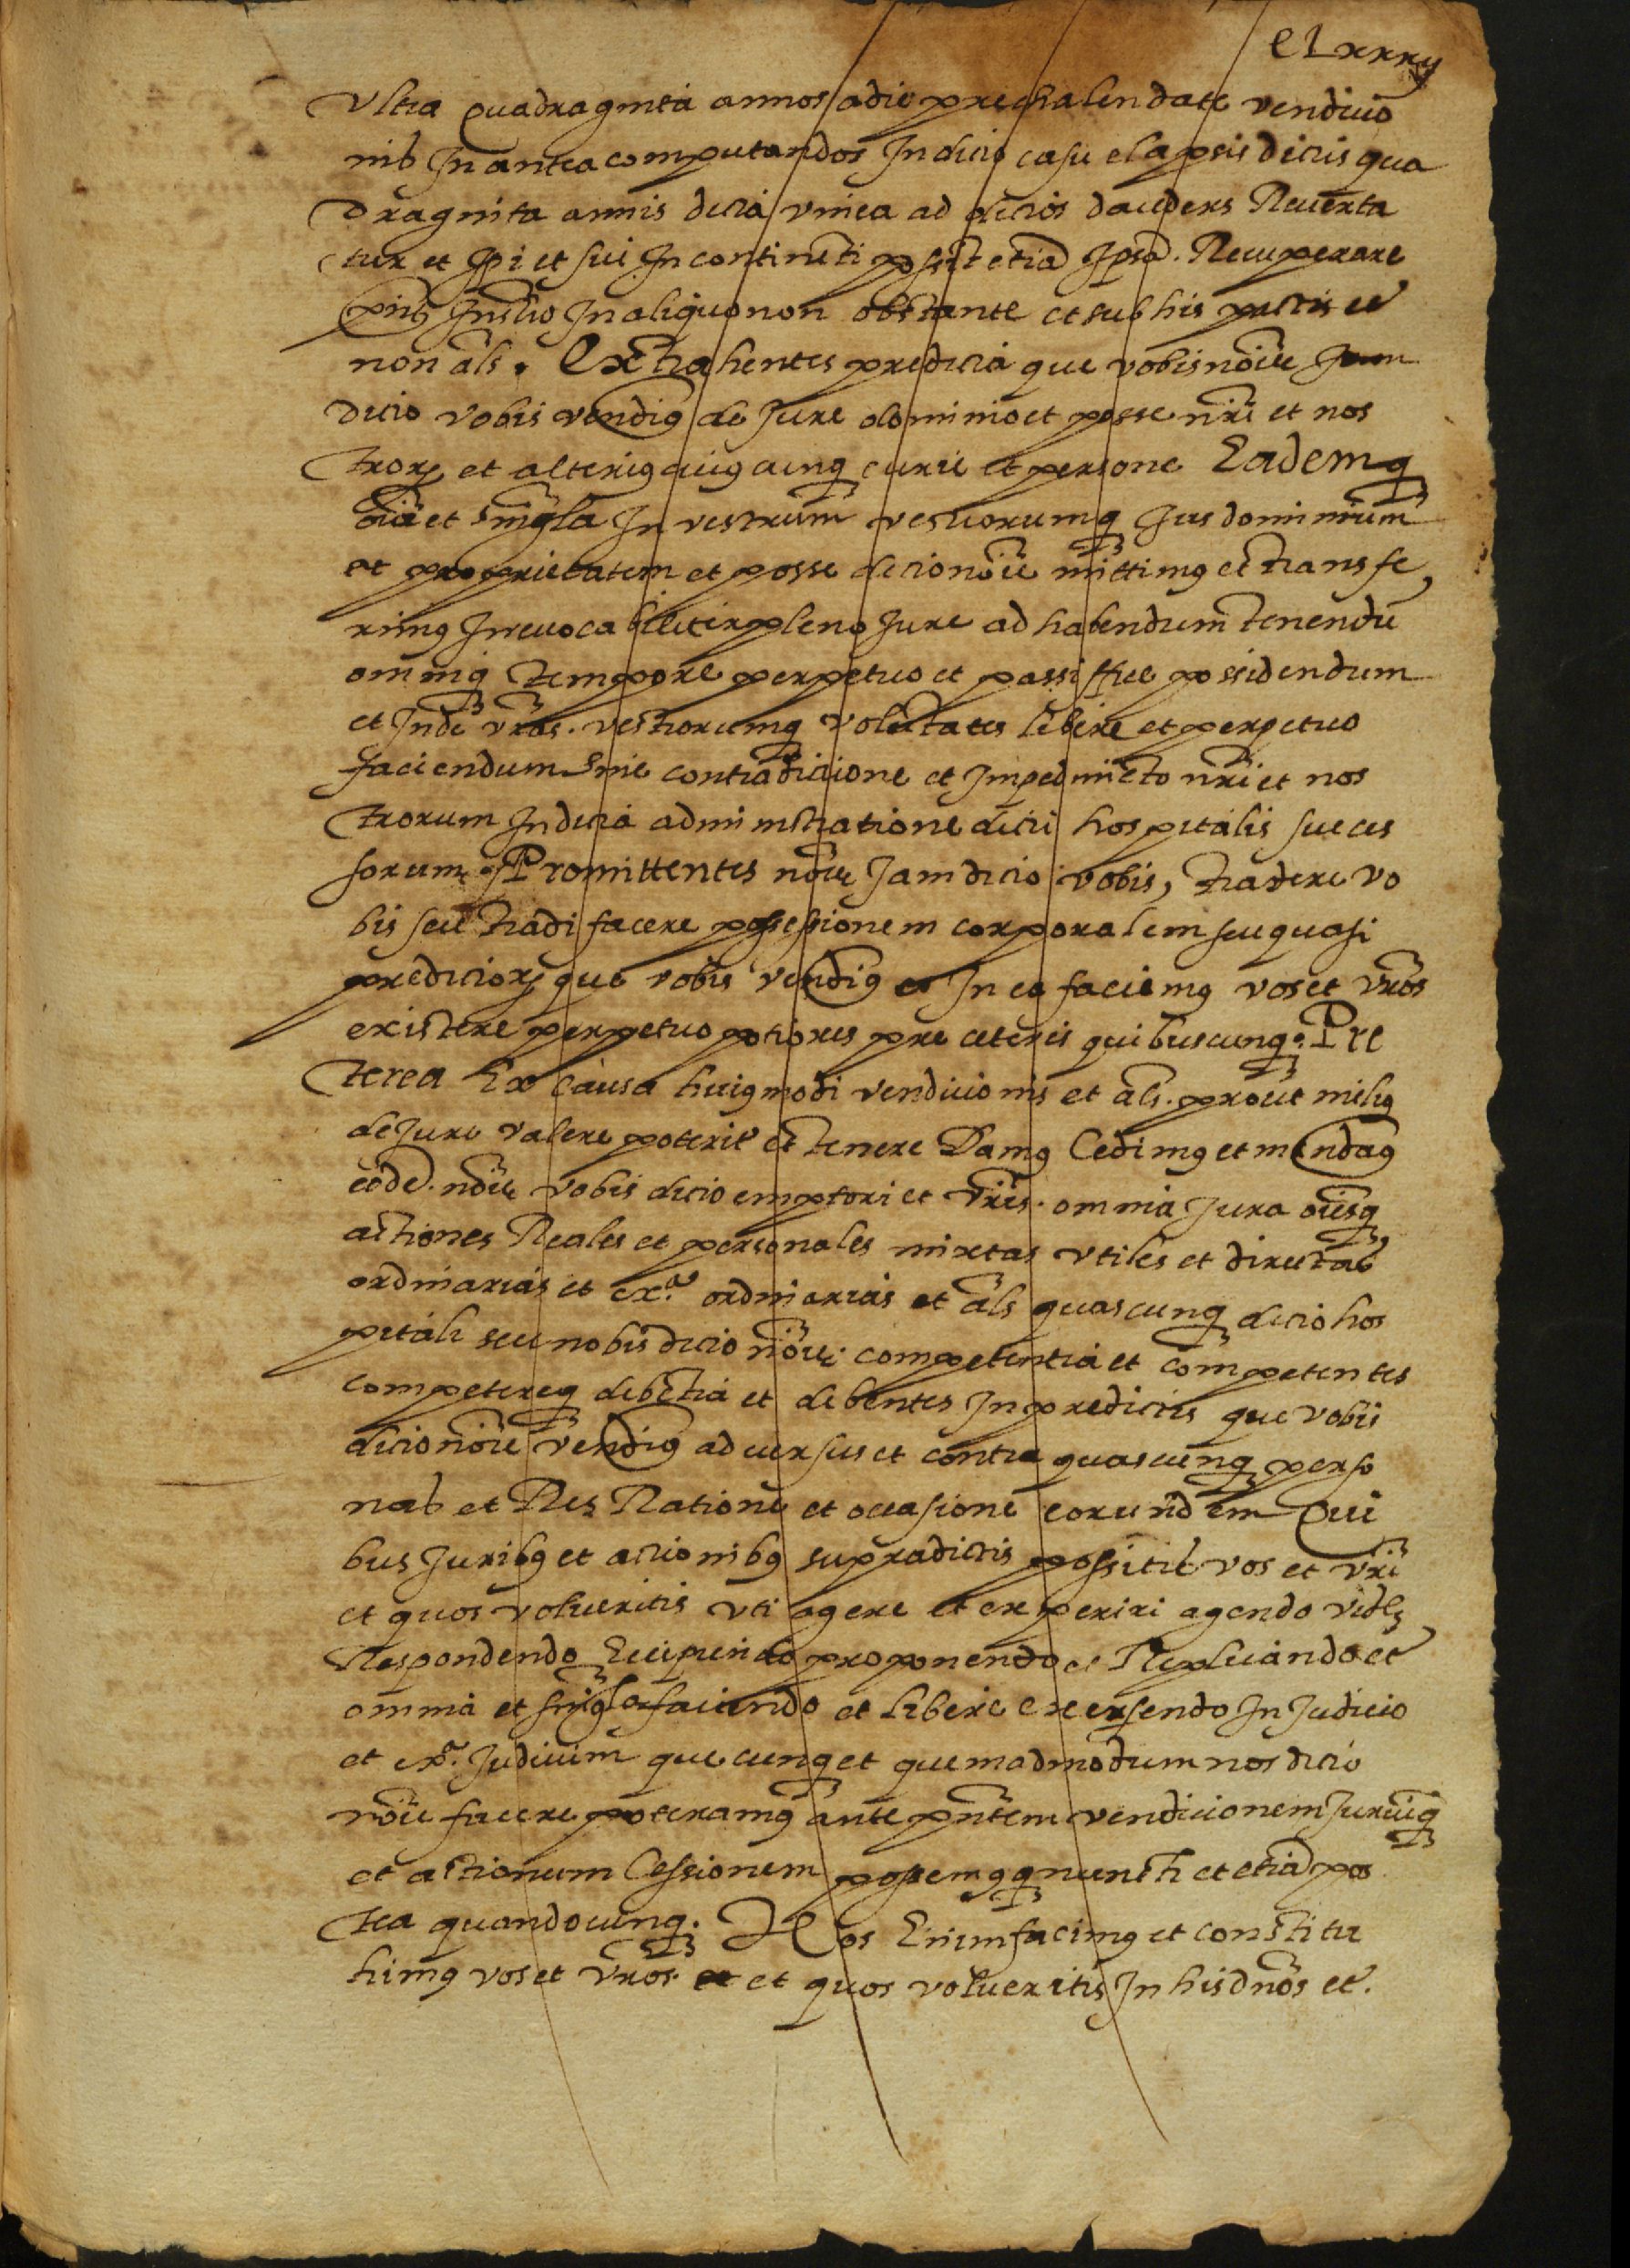 clxxxij
Vltra Quadraginta annos adie prechalendate vendicio
nis In antea computandos In dicto casu elapsis dictis qua
draginta annis dicta vinea ad dictos dauders Reuerta
tur et Ipi et sui Incontinẽti possit etiã Ipsã. Recuperare
pnti Instrio In aliquo non obstante et sub his pactis et
non als. Extrahentes predicta que vobis noie Jam
dicto vobis vendimꝰ de Jure dominio et posse nri et nos
troꝝ et alteriꝰ cuiꝰcunqꝫ curie et persone Eademqꝫ
oia et singla In vestrum vestrorumqꝫ Jus dominium
et proprietatem et posse dicto noie mittimꝰ et transfe
rimꝰ Irreuocabiliter pleno Jure ad habendum tenendũ
omniqꝫ tempore perpetuo et passiffice possidendum
et Inde vras. vestrorumqꝫ volũtates libere et perpetuo
faciendum sine contradictione et Impedimẽto nri et nos
trorum In dicta administratione dicti hospitalis succes
sorum. Promittentes noie Jamdicto vobis, tradere vo
bis seu tradi facere possessionem corporalem seu quasi
predictoꝝ que vobis vendimꝰ et In ea faciemꝰ vos et vros
existere perpetuo potiores pre ceteris quibuscunqꝫ. Pre
terea Ex causa huiꝰmodi vendicionis et als. prout meliꝰ
de Jure valere poterit et tenere Damꝰ Cedimꝰ et mandamꝰ
eodẽ. noie vobis dicto emptori et vris. omnia Jura oesqꝫ
actiones Reales et personales mixtas vtiles et directas
ordinarias et exᵃ. ordinarias et als quascunqꝫ dicto hos
pitali seu nobis dicto noie. competentia et competentes
competereqꝫ debẽtia et debentes In predictis que vobis
dicto noie vendimꝰ aduersus et contra quascunqꝫ perso
nas et Res Ratione et occasione eorundem Qui
bus Juribꝰ et actionibꝰ supradictis possitis vos et vri
et quos volueritis vti agere et experiri agendo vidlꝫ
Respondendo Excipiendo proponendo et Replicando et
omnia et singla faciendo et libere exersendo In Judicio
et exᵃ. Judicium quecunqꝫ et quemadmodum nos dicto
noie facere poteramꝰ ante pntem vendicionem Juriumqꝫ
et actionum Cessionem possemꝰqꝫ nunch et etiã pos
tea quandocunqꝫ. Nos Enim facimꝰ et constitu
himꝰ vos et vros et quos volueritis In his dnos et.